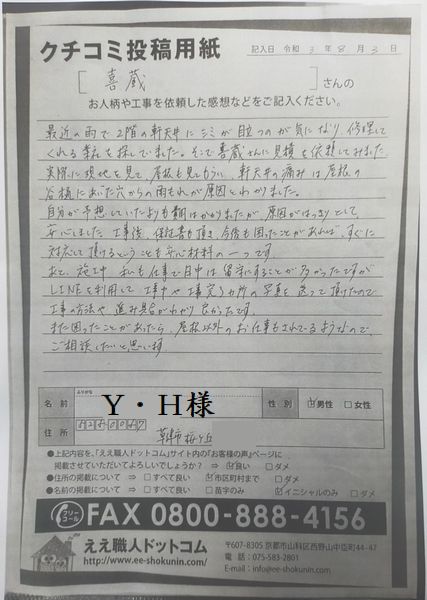 クチコミ投稿用紙
記入日 令和 3年 8月 3日
[ 喜蔵 ] さんの
お人柄や工事を依頼した感想などをご記入ください。
最近の雨で2階の軒天井にシミが目立つのが気になり、修理して
くれる業者を探していました。そこで喜蔵さんに見積を依頼してみました。
実際に現地を見て、屋根も見てもらい、軒天井の痛みは屋根の
谷樋にあいた穴からの雨もれが原因とわかりました。
自分が予想していたよりも費用はかかりましたが、原因がはっきりとして、
安心しました。工事後、保証書も頂き、今後も困ったことがあれば、すぐに
対応して頂けるということも安心材料の一つです。
あと、施工中、私も仕事で日中は留守にすることが多かったですが
LINEを利用して工事中や工事完了カ所の写真を送って頂けたので、
工事の方法や進み具合がわかり良かったです。
また困ったことがあったら、屋根以外のお仕事もされているようなので、
ご相談したいと思います
ふりがな
名前 Y・H様 性別 男性 女性
住所 草津市桜ヶ丘
●上記内容を、「ええ職人ドットコム」サイト内の「お客様の声」ページに
掲載させていただいてよろしいでしょうか？ ⇒ 良い ダメ
●住所の掲載について ⇒ すべて良い 市区町村まで ダメ
●名前の掲載について ⇒ すべて良い 苗字のみ イニシャルのみ ダメ
フリーコール FAX 0800-888-4156
ええ職人ドットコム
http://www.ee-shokunin.com/
〒607-8305 京都市山科区西野山中臣町44-47
電話：075-583-2801
E-mail：info@ee-shokunin.com